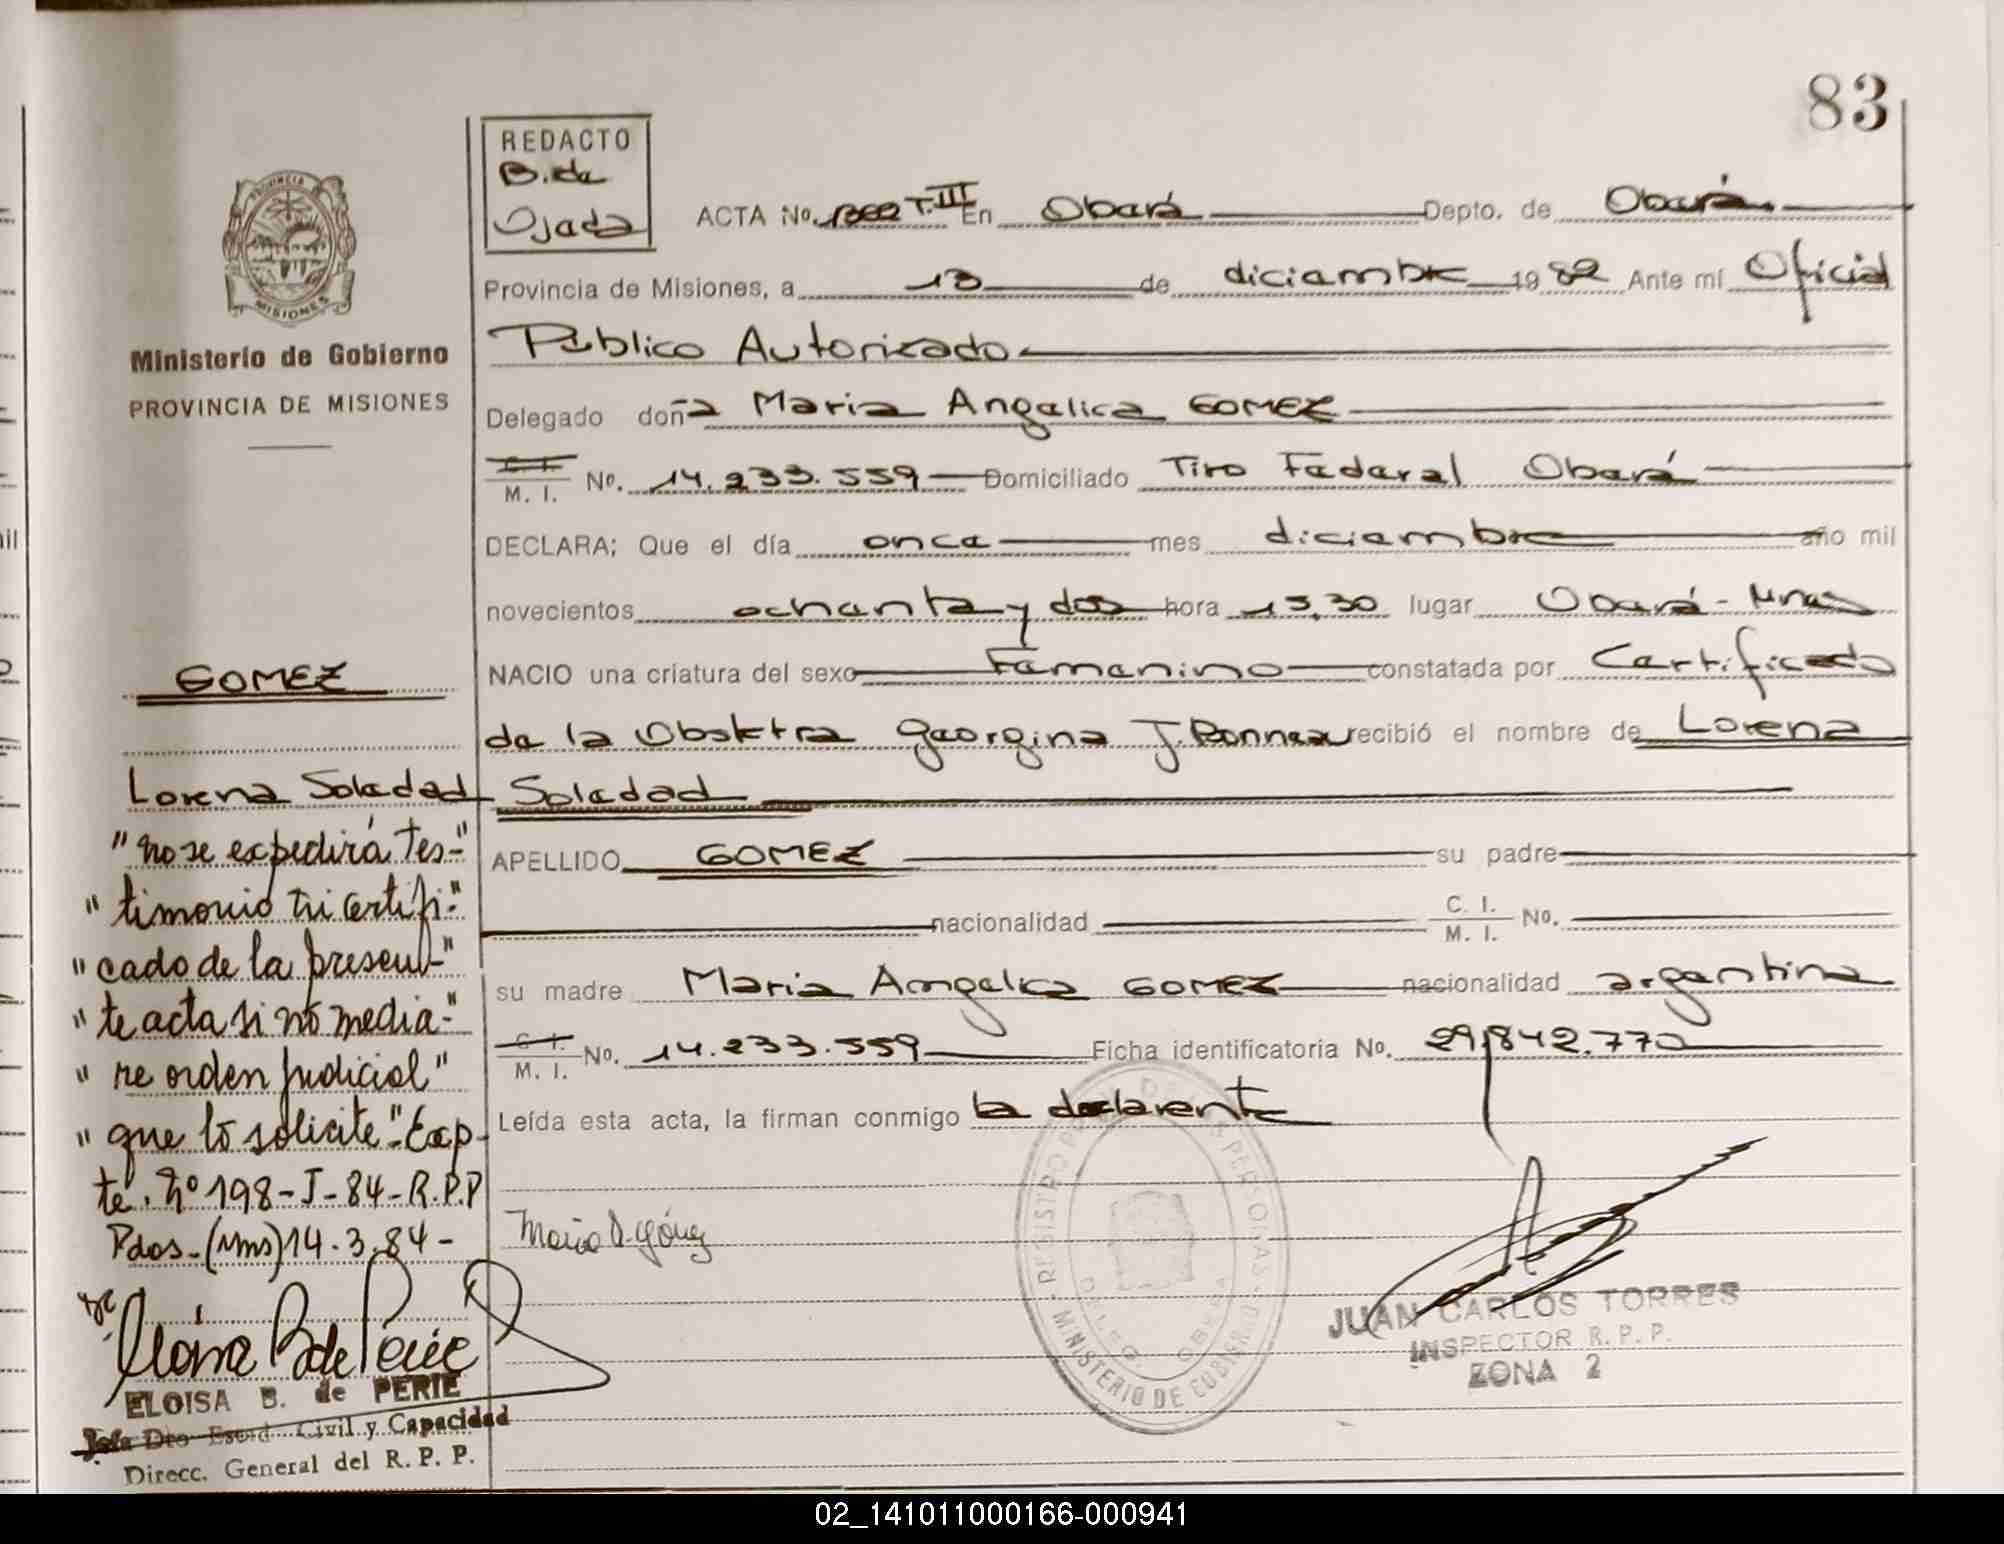 83
REDACTO
B. de
Ojeda
PROVINCIA
MISIONES
ACTA No. T.III En Oberá Depto. de Oberá
Provincia de Misiones, a 13 de diciembre 1982 Ante mí Oficial
Ministerio de Gobierno
Público Autorizado
PROVINCIA DE MISIONES
Delegado doña Maria Angelica GOMEZ
C. I. M. I. No. 14.233.559 Domiciliado Tiro Federal Oberá
DECLARA; Que el día once mes diciembre año mil
novecientos ochenta y dos hora 15,30 lugar Oberá - Mnes
NACIO una criatura del sexo Femenino constatada por Certificado
GOMEZ
de la Obstetra Georgina J. recibió el nombre de Lorena
Lorena Soledad
Soledad
APELLIDO GOMEZ su padre
nacionalidad C. I. M. I. No.
su madre Maria Angelica GOMEZ nacionalidad argentina
C. I. M. I. No. 14.233.559 Ficha identificatoria No. 29.842.770
Leída esta acta, la firman conmigo la declarente
"no se expedirá tes-"
"timonio ni certifi-"
"cado de la presen-"
"te acta si no media-"
"re orden judicial"
"que lo solicite". Exp-
te. Nº 198-J-84-R.P.P
Pdas-(Mns)14.3.84-
Maria A. Gómez
REGISTRO PCIAL. DE LAS PERSONAS
MINISTERIO DE GOBIERNO
DELEG. OBERA
JUAN CARLOS TORRES
INSPECTOR R. P. P.
ZONA 2
Eloisa B de Perié
ELOISA B. de PERIE
Jefe Dto Estad. Civil y Capacidad
Direcc. General del R. P. P.
02_141011000166-000941